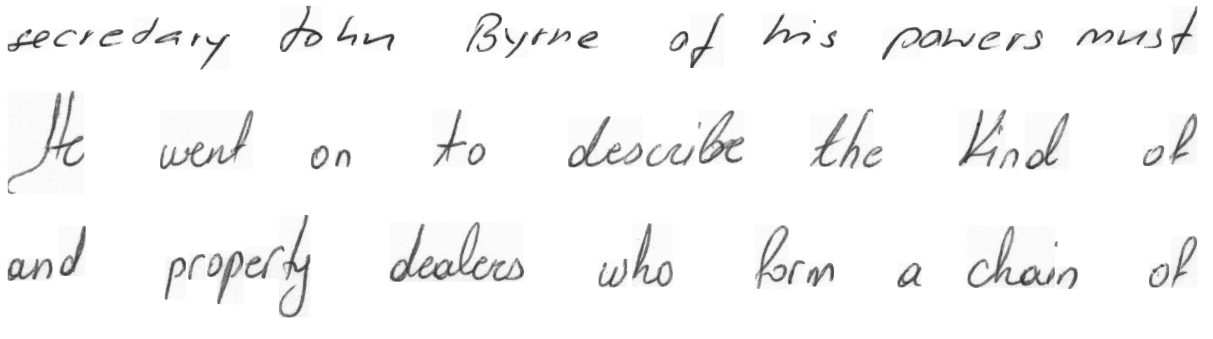 secredary John Byrne of his powers must
He went on to describe the kind of
and property dealers who form a chain of